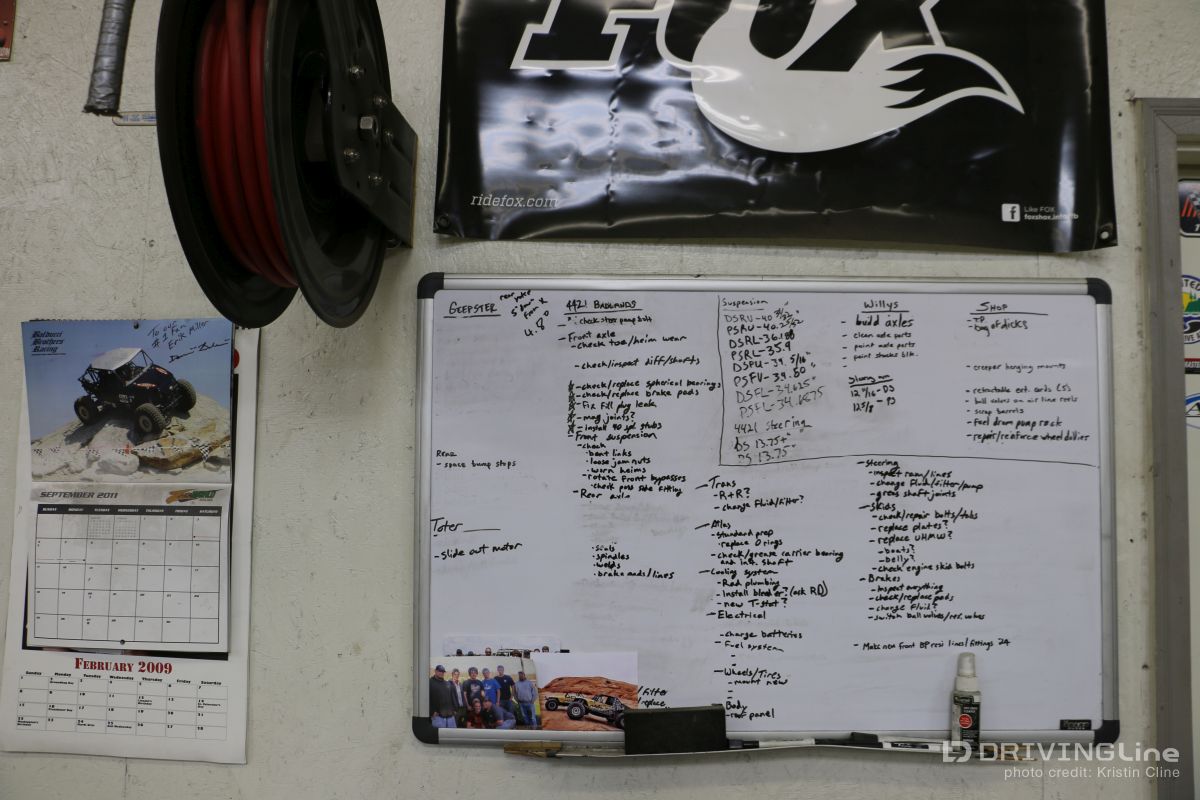 FOX
ridefox.com
Like FOX
foxshox.info/fb
Balducci
Brothers
Racing
To our
#1 Fan
Erik Miller
SEPTEMBER 2011
FEBRUARY 2009
Sunday Monday Tuesday Wednesday Thursday Friday Saturday
GEEPSTER
4.8
Rear
- space bump stops
Toter
- slide out motor
4421 BADLANDS
- Front axle
- check toe/heim wear
- check/inspect diff/shafts
- check/replace spherical bearings
- check/replace brake pads
- Fix Fill plug leak
- mag joints?
- install 40 spl stubs
- Front suspension
- check
- bent links
- loose jam nuts
- worn heims
- rotate front bypasses
- check pass side fitting
- Rear axle
- seals
- spindles
- welds
- brake ends/lines
Suspension
PSRL-35.9
DSPU-39.5/16"
PSFV-39.80
DSFL-34.625"
PSFL-34.6875
4421 Steering
DS 13.75+"
DS 13.75"
Willys
- build axles
- clean axle parts
- paint axle parts
- paint shocks blk.
SHOP
- TP
- bag of dicks
- creeper hanging mounts
- retractable ext. cords (5)
- ball valves on air line reels
- scrap barrels
- fuel drum pump rack
- repair/reinforce wheel dollies
- Trans
- R+R?
- change Fluid/filter?
- Atlas
- standard prep
- replace O rings
- check/grease carrier bearing
and int. shaft
- Cooling system
- Rad plumbing
- Install bleeder? (ask RD)
- new T-stat?
- Electrical
- charge batteries
- Fuel system
- Wheels/Tires
- mount new
- Body
- roof panel
filter
replace
- Steering
- inspect ram/lines
- change Fluid/filter/pump
- grease shaft joints
- Skids
- check/repair bolts/tabs
- replace plates?
- replace UHMW?
- boats?
- belly?
- check engine skid bolts
- Brakes
- Inspect everything
- check/replace pads
- change fluid?
- switch ball valves/res. valves
- Make new front BP resi lines/fittings 24
DRIVINGLine
photo credit: Kristin Cline